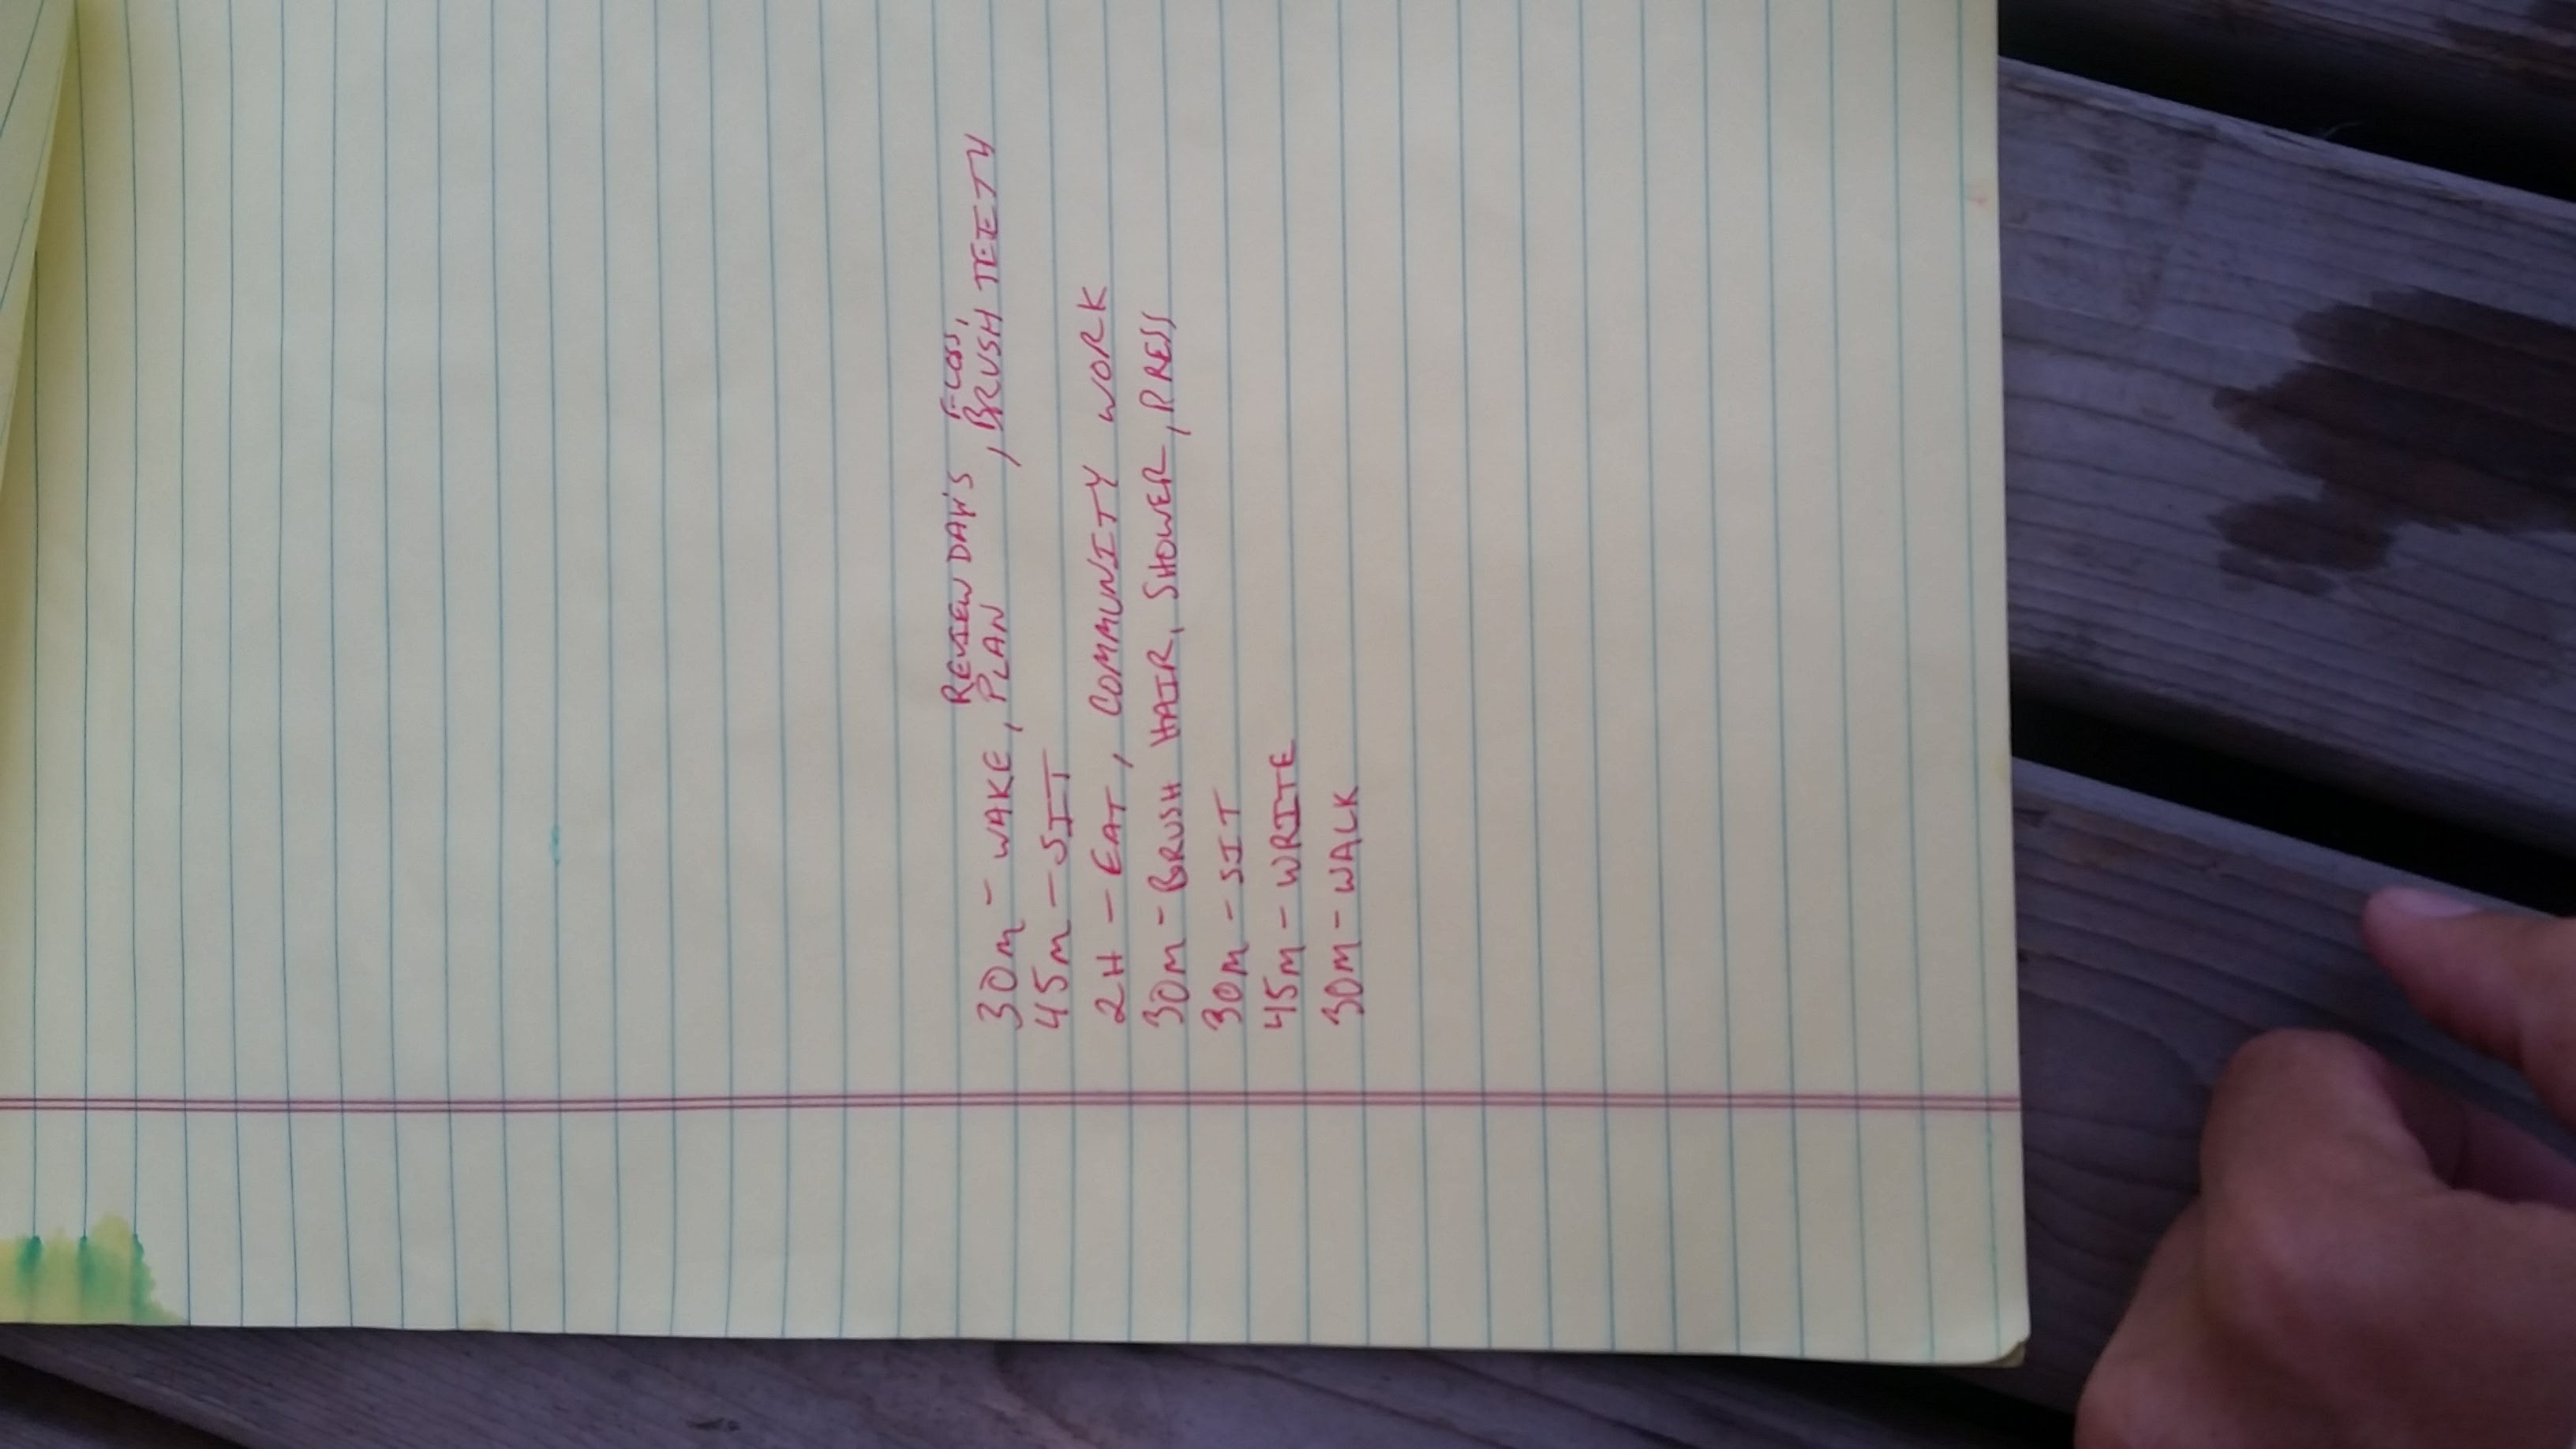 REVIEW DAY'S FLOSS,
30M - WAKE, PLAN, BRUSH TEETH
45M - SIT
2H - EAT, COMMUNITY WORK
30M - BRUSH HAIR, SHOWER, PRESS
30M - SIT
45M - WRITE
30M - WALK